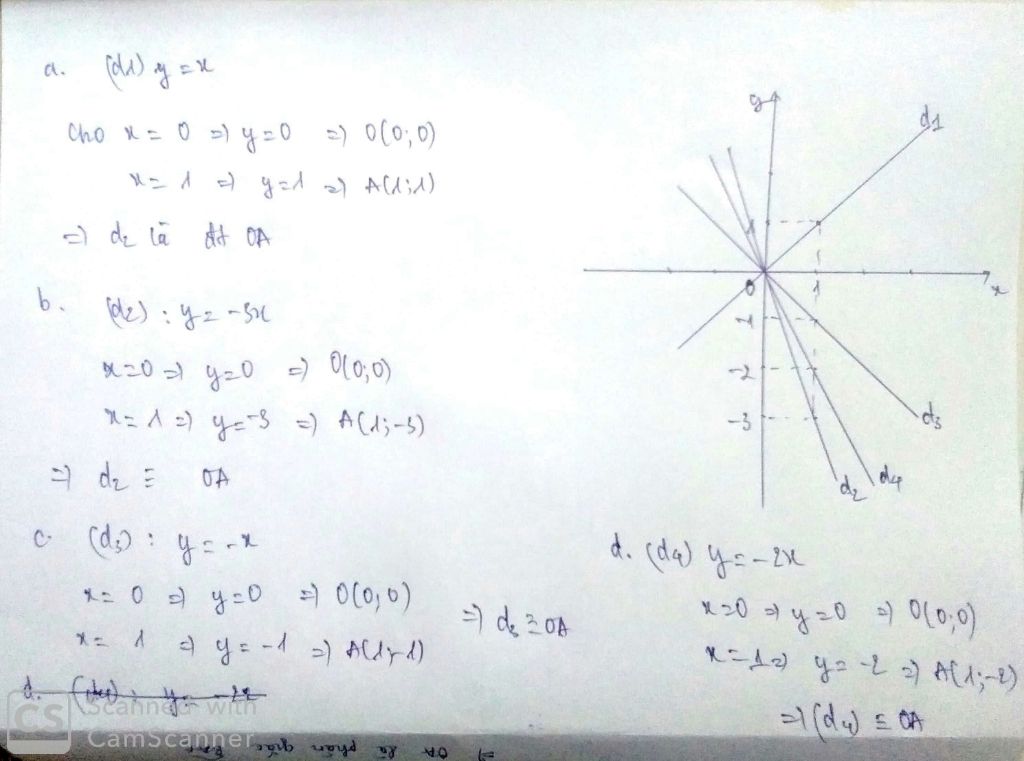 a. (d1) y = x
Cho x = 0 => y = 0 => O(0; 0)
x = 1 => y = 1 => A(1; 1)
=> d2 là đt OA
b. (d2) : y = -3x
x = 0 => y = 0 => O(0; 0)
x = 1 => y = -3 => A(1; -3)
=> d2 ≡ OA
c. (d3) : y = -x
x = 0 => y = 0 => O(0; 0)
x = 1 => y = -1 => A(1; -1)
=> d3 ≡ OA
d. (d4) : y = -2x
y
d1
1
O 1 x
-1
-2
-3
d3
d2 d4
d. (d4) y = -2x
x = 0 => y = 0 => O(0; 0)
x = 1 => y = -2 => A(1; -2)
=> (d4) ≡ OA
CS Scanned with
CamScanner
=> OA là phân giác